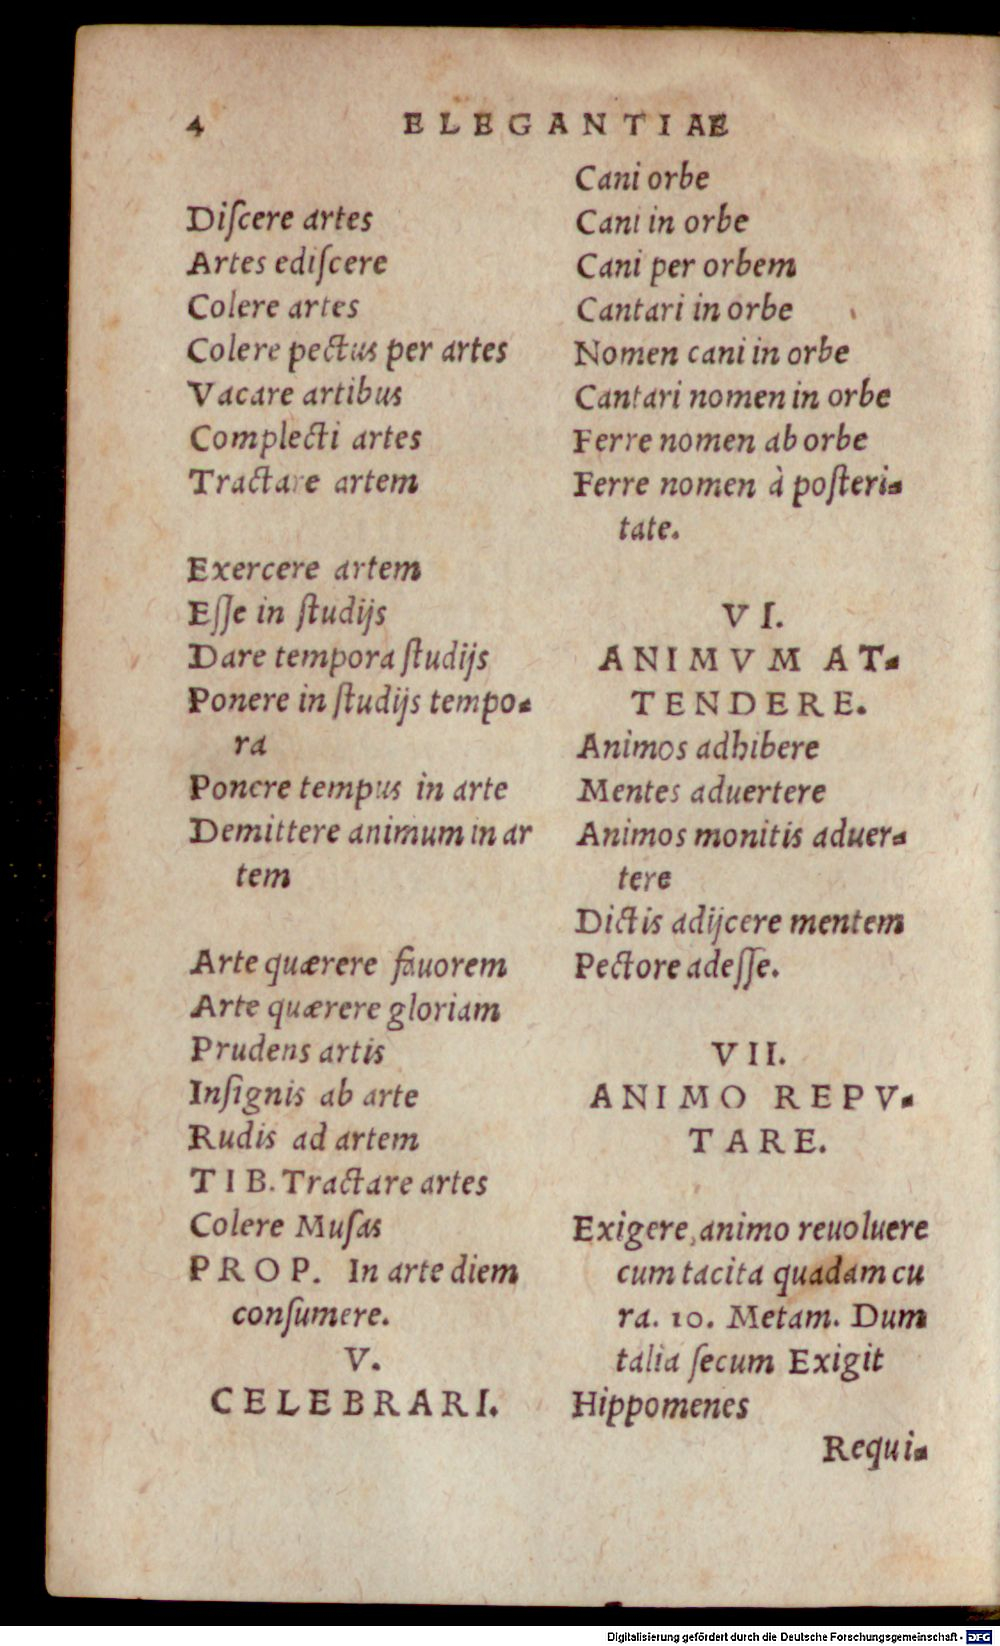 4 ELEGANTIAE
Diſcere artes
Artes ediſcere
Colere artes
Colere pectus per artes
Vacare artibus
Complecti artes
Tractare artem
Exercere artem
Eſſe in ſtudijs
Dare tempora ſtudijs
Ponere in ſtudijs tempo-
ra
Ponere tempus in arte
Demittere animum in ar
tem
Arte quærere fauorem
Arte quærere gloriam
Prudens artis
Inſignis ab arte
Rudis ad artem
TIB. Tractare artes
Colere Muſas
PROP. In arte diem
conſumere.
V.
CELEBRARI.
Cani orbe
Cani in orbe
Cani per orbem
Cantari in orbe
Nomen cani in orbe
Cantari nomen in orbe
Ferre nomen ab orbe
Ferre nomen à poſteri-
tate.
VI.
ANIMVM AT-
TENDERE.
Animos adhibere
Mentes aduertere
Animos monitis aduer-
tere
Dictis adijcere mentem
Pectore adeſſe.
VII.
ANIMO REPV-
TARE.
Exigere, animo reuoluere
cum tacita quadam cu
ra. 10. Metam. Dum
talia ſecum Exigit
Hippomenes
Requi-
Digitalisierung gefördert durch die Deutsche Forschungsgemeinschaft - DFG